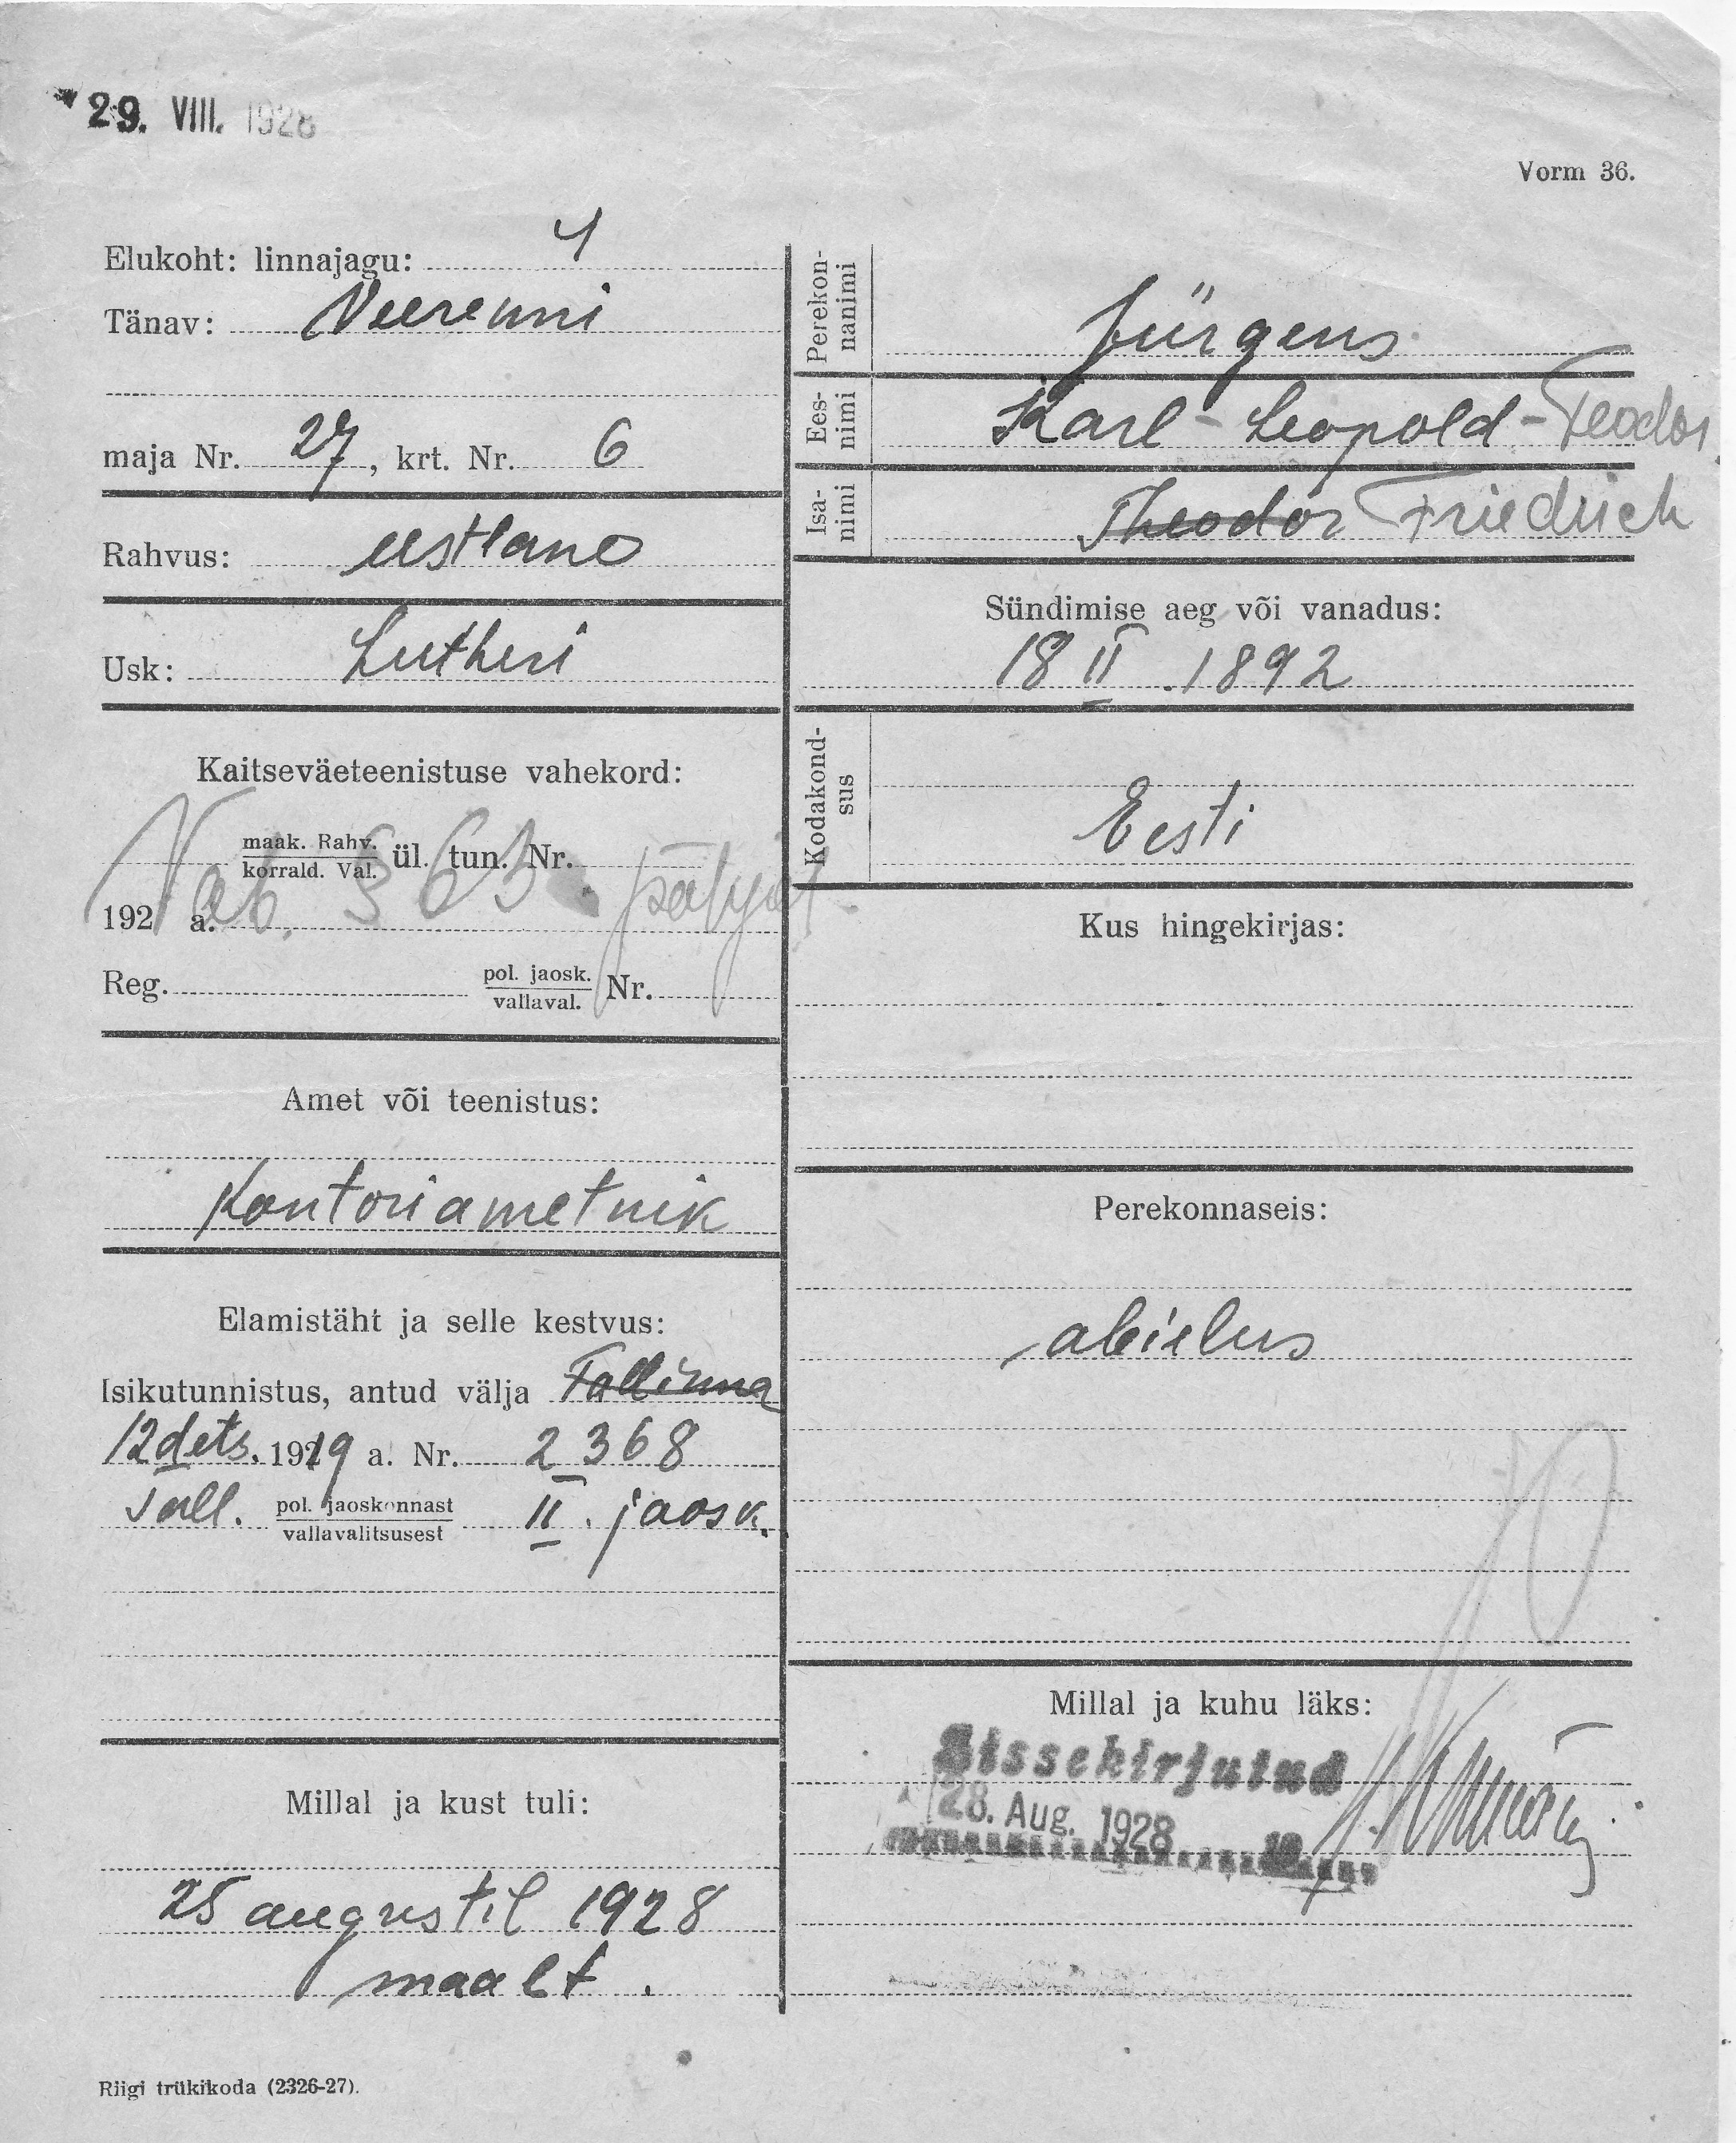 29. VIII. 1928
Vorm 36.
Elukoht: linnajagu: 4
Tänav: Veerenni
maja Nr. 27, krt. Nr. 6
Rahvus: eestlane
Usk: Lutheri
Kaitseväeteenistuse vahekord:
maak. Rahv.
korrald. Val. ül. tun. Nr.
Vab. § 63 põhjal
192 a.
Reg. pol. jaosk.
vallaval. Nr.
Amet või teenistus:
Kontoriametnik
Elamistäht ja selle kestvus:
Isikutunnistus, antud välja Tallinna
12 dets. 1919 a. Nr. 2368
Tall. pol. jaoskonnast
vallavalitsusest II. jaosk.
Millal ja kust tuli:
25 augustil 1928
maalt.
Riigi trükikoda (2326-27).
Perekon-
nanimi
Jürgens
Ees-
nimi
Karl-Leopold-Feodor
Isa-
nimi
Theodor Friedrich
Sündimise aeg või vanadus:
18 II . 1892
Kodakond-
sus
Eesti
Kus hingekirjas:
Perekonnaseis:
abielus
Millal ja kuhu läks:
Sissekirjutud
28. Aug. 1928
19